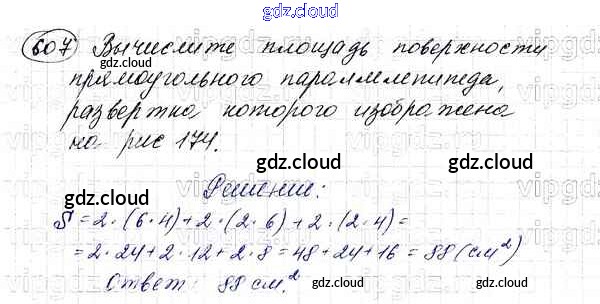 gdz.cloud
607 Вычислите площадь поверхности
gdz.cloud
прямоугольного параллелепипеда,
развертка которого изображена
на рис 174.
gdz.cloud gdz.cloud
gdz.cloud gdz.cloud
Решение:
S = 2·(6·4)+2·(2·6)+2·(2·4)=
=2·24+2·12+2·8=48+24+16=88(см²)
Ответ: 88 см.²
gdz.cloud gdz.cloud
gdz.cloud